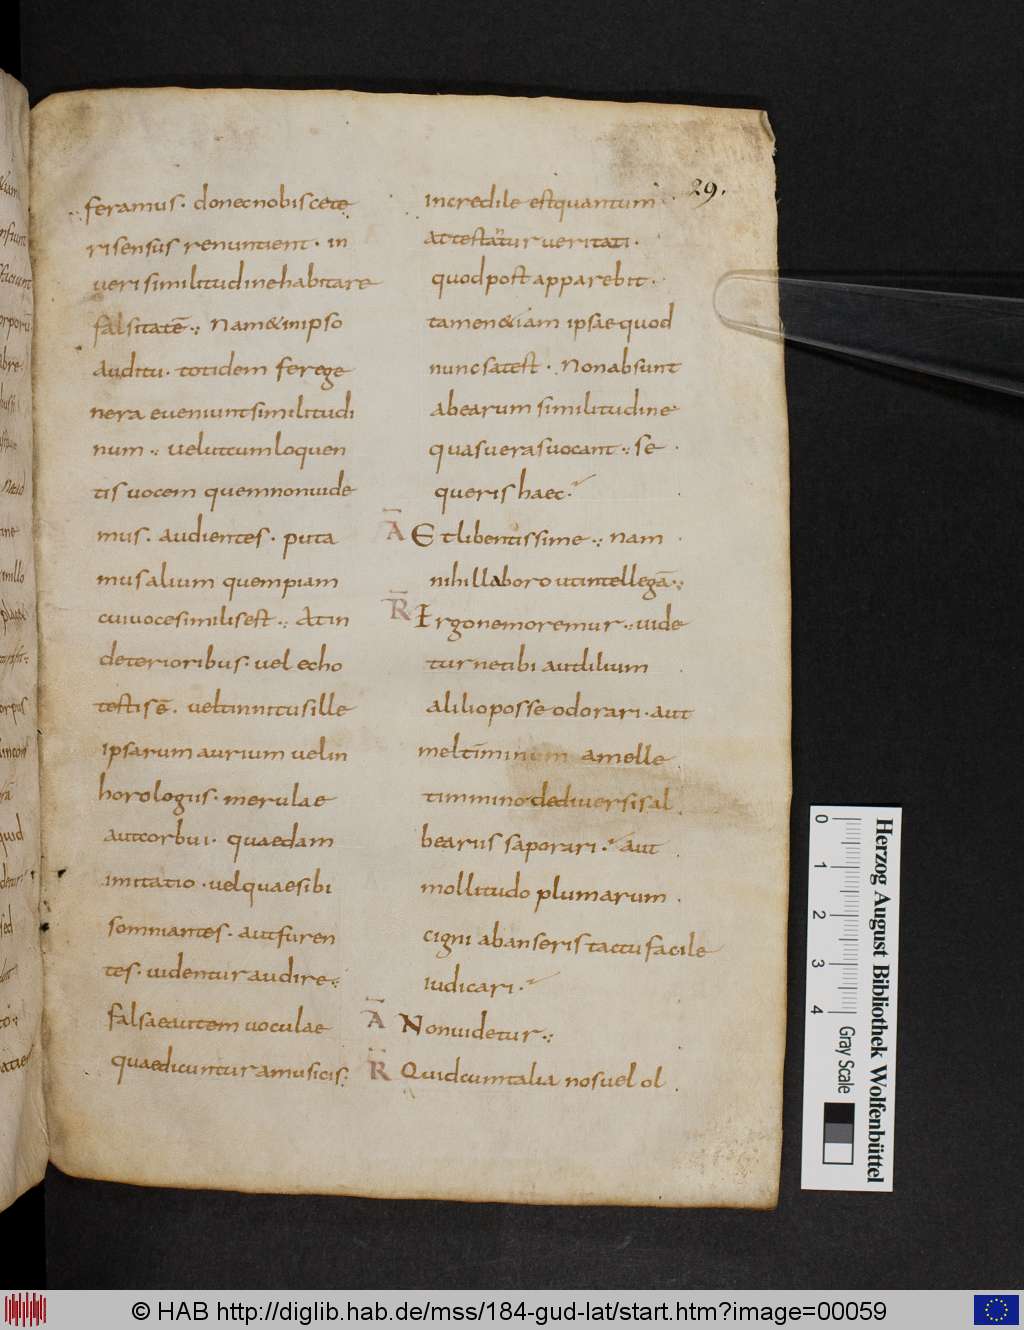 feramus· donec nobis cete
ri sensus renuntient· in
veri similitudine habitare
falsitatē·: Nam & in ipso
auditu· totidem fere ge
nera eveniunt similitudi
num·: velut cum loquen
tis vocem quem non vide
mus· audientes· puta
mus alium quempiam
cui voce similis est·: At in
deterioribus· vel echo
testis ē· vel tinnitus ille
ipsarum aurium vel in
horologiis· merulae
aut corbui· quaedam
imitatio· vel quae sibi
somniantes· aut furen
tes· videntur audire·:
falsae autem voculae
quae dicuntur a musicis:
29.
incredile est quantum
attestatur veritati·
quod post apparebit·
tamen & iam ipsae quod
nunc sat est· Non absunt
ab earum similitudine
quas veras vocant·: se
queris haec·
A Et libentissime·: nam
nihil laboro ut intellegā·:
R Ergo ne moremur·: vide
turne tibi aut lilium
a lilio posse odorari· aut
mel timinum a melle
timmino de diversis al
beariis saporari· aut
mollitudo plumarum
cigni ab anseris tactu facile
iudicari·
A Non videtur·:
R Quid cum talia nos vel ol
0 1 2 3 4
Gray Scale
Herzog August Bibliothek Wolfenbüttel
© HAB http://diglib.hab.de/mss/184-gud-lat/start.htm?image=00059